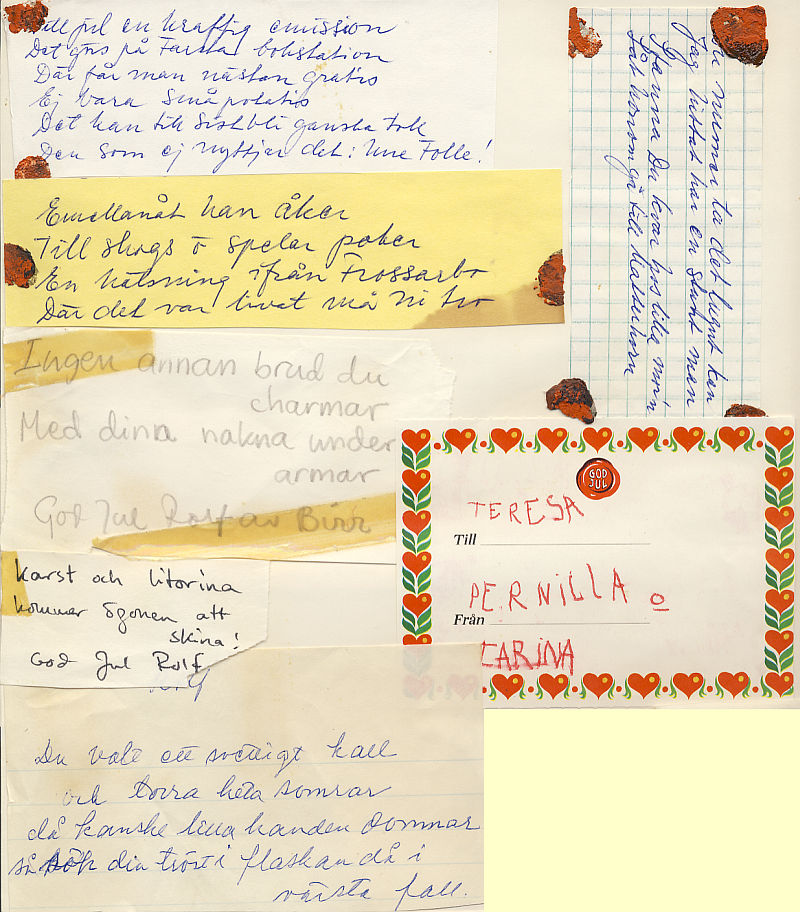 Till jul en kraftig emission
Det gjis på Farsta bokstation
Där får man nästan gratis
Ej bara småpotatis
Det kan till sist bli ganska tok
Den som ej nyttjar det: Une Folle!
Emellanåt han åker
Till skogs o spelar poker
En hälsning ifrån Frossarbo
Där det var livat må ni tro
Ingen annan brud du
charmar
Med dina nakna under
armar
God Jul Rolf av Birr
Karst och litorina
kommer ögonen att
skina!
God Jul Rolf
Du valt ett svettigt kall
och torra heta somrar
då kanske lilla handen domnar
så sök din tröst i flaskan då i
värsta fall.
Nu numer ta det lugnt kan
Jag hittat har en slant men
Stanna Du kvar hos lilla mor'n
Låt honom gå till Matterhorn
GOD
JUL
TERESA
Till
PERNILLA o
Från
CARINA